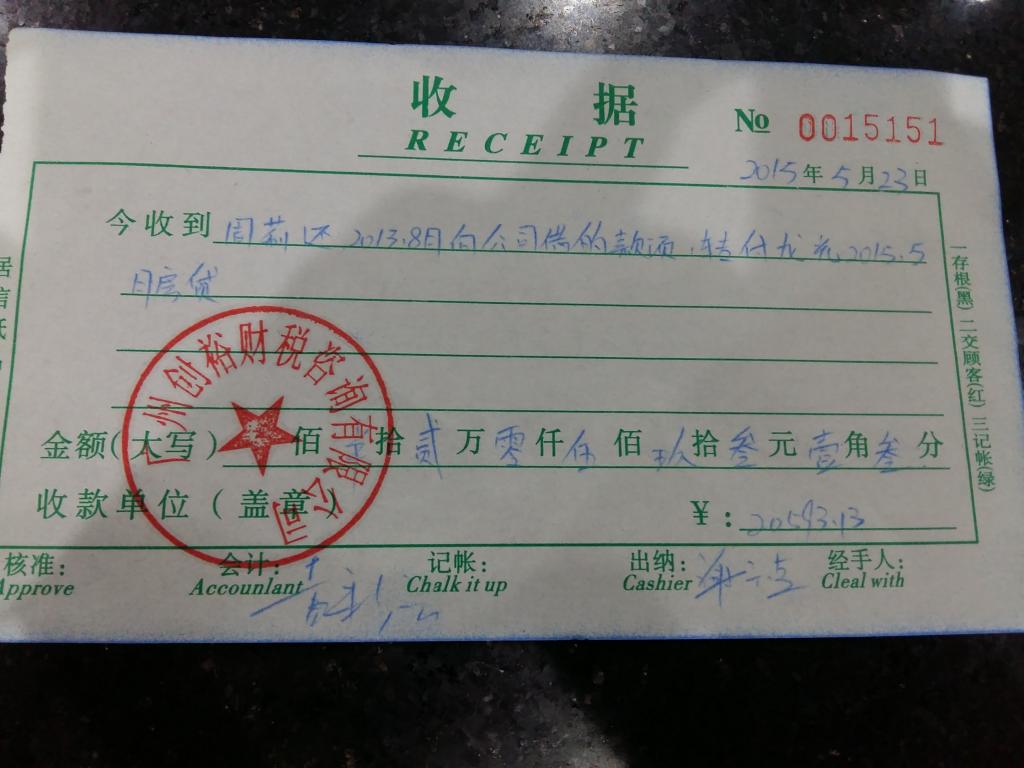 收 据
RECEIPT
No 0015151
2015年5月23日
今收到 周莉还2013.8月向公司借的款项,转付龙 2015.5
月房贷
广州创裕财税咨询有限公司
金额(大写) 佰 拾 贰 万 零 仟 伍 佰 玖 拾 叁 元 壹 角 叁 分
收款单位(盖章) ¥: 20593.13
核准: 会计: 记帐: 出纳: 经手人:
Approve Accounlant Chalk it up Cashier Cleal with
一存根(黑) 二交顾客(红) 三记帐(绿)